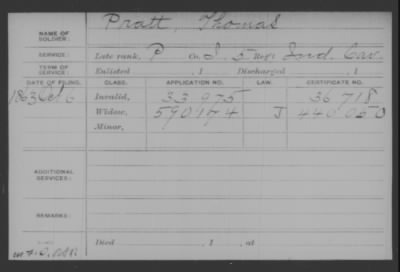 NAME OF SOLDIER: Pratt, Thomas
SERVICE: Late rank, P Co. I, 5 Reg't Ind. Cav.
TERM OF SERVICE: Enlisted , 1 Discharged , 1
DATE OF FILING. CLASS. APPLICATION NO. LAW. CERTIFICATE NO.
1863 Oct 6 Invalid, 33 975 36 718
Widow, 590174 J 440 050
Minor,
ADDITIONAL SERVICES:
REMARKS:
Died , 1 , at